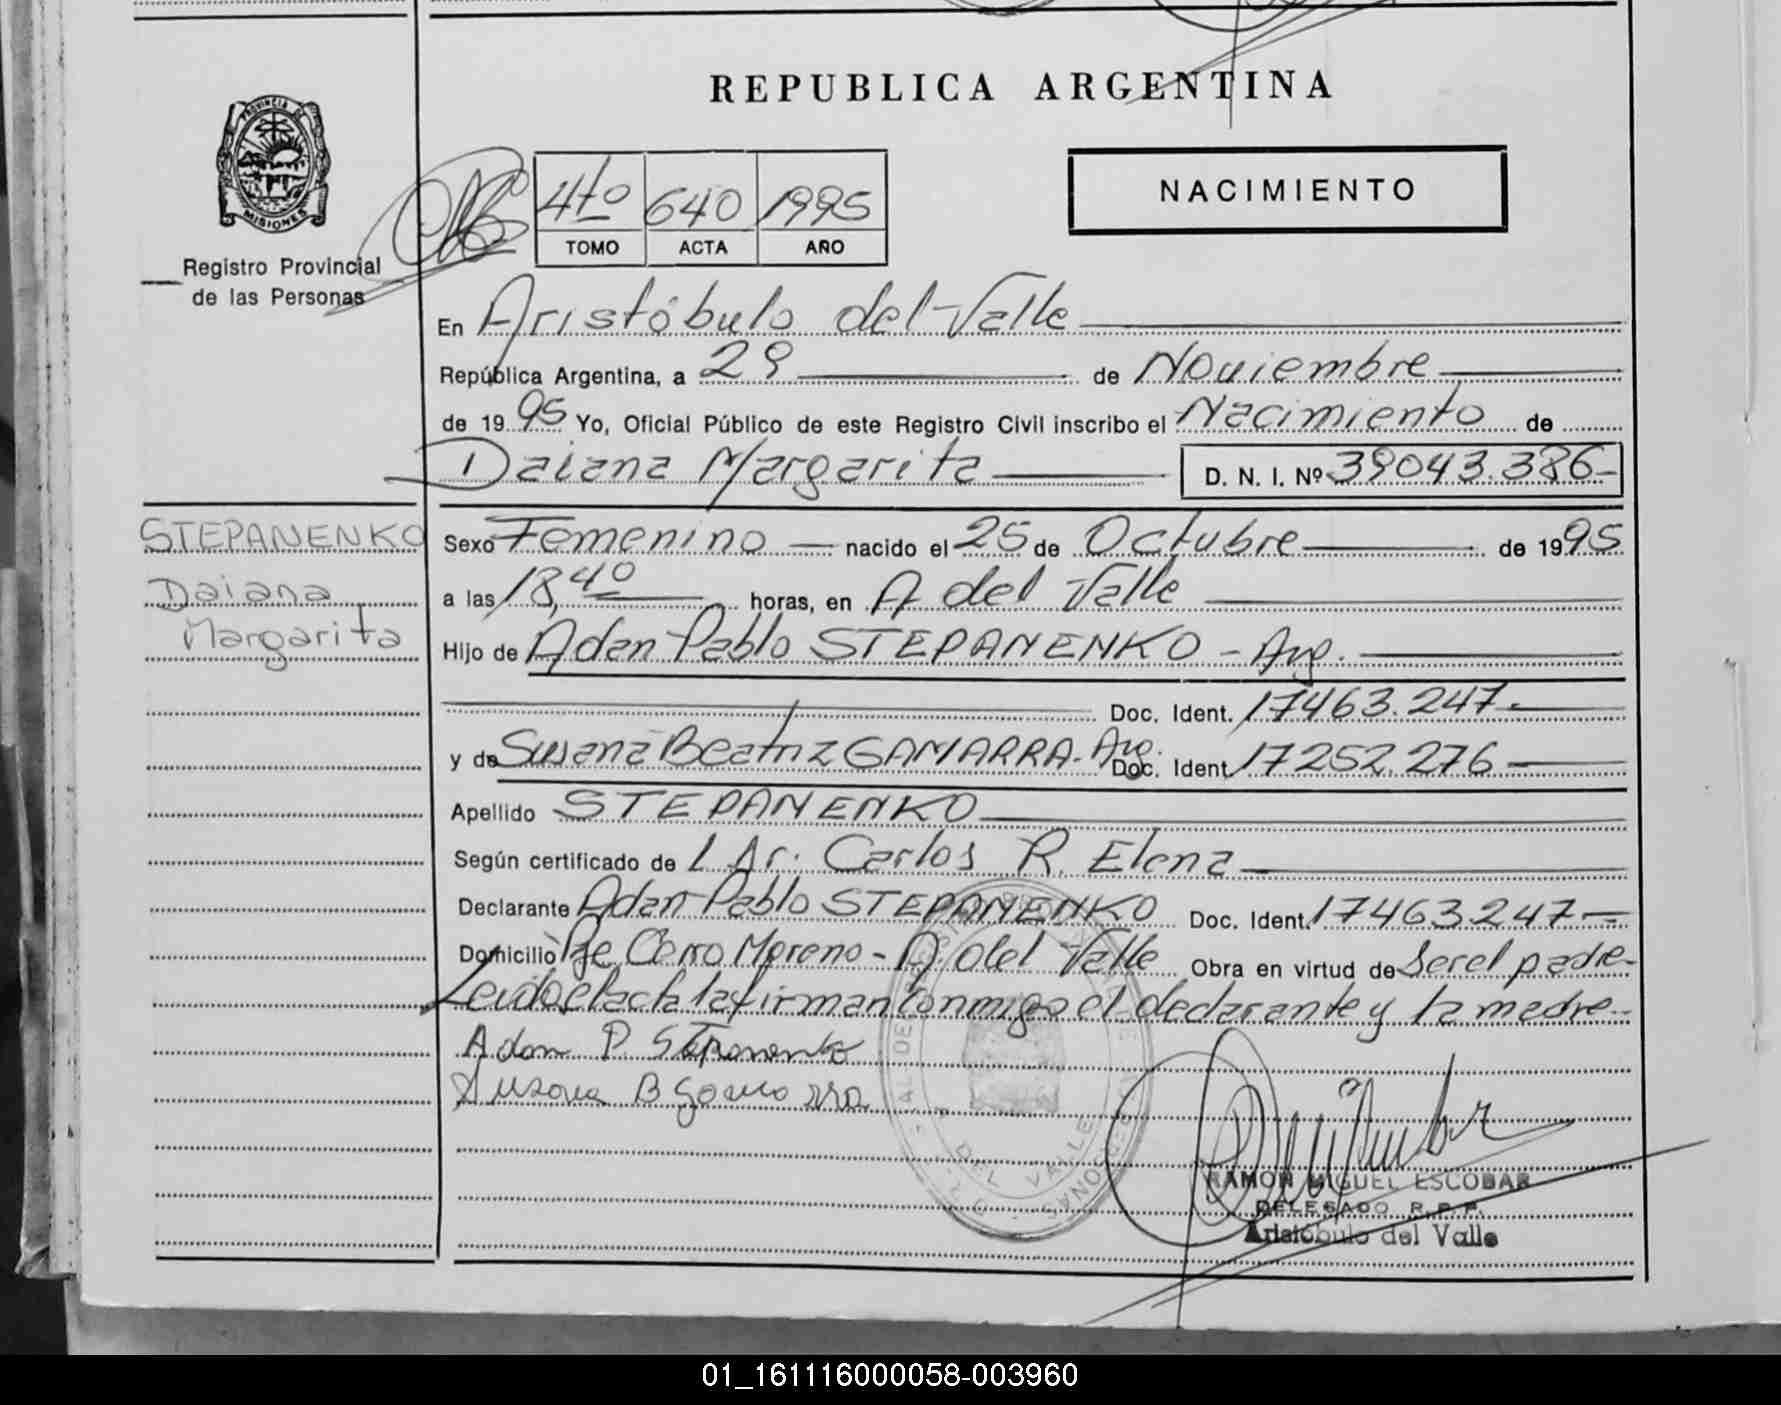 REPUBLICA ARGENTINA
PROVINCIA DE
MISIONES
Registro Provincial
de las Personas
4to 640 1995
TOMO ACTA AÑO
NACIMIENTO
En Aristóbulo del Valle
República Argentina, a 29 de Noviembre
de 1995 Yo, Oficial Público de este Registro Civil inscribo el Nacimiento de
Daiana Margarita D. N. I. Nº 39043.386-
STEPANENKO
Daiana
Margarita
Sexo Femenino nacido el 25 de Octubre de 1995
a las 18,40 horas, en A del Valle
Hijo de Adan Pablo STEPANENKO - Arg.
Doc. Ident. 17463.247.
y de Susana Beatriz GAMARRA. Arg. Doc. Ident 17252.276
Apellido STEPANENKO
Según certificado de Carlos R. Elena
Declarante Adan Pablo STEPANENKO Doc. Ident. 17463247
Domicilio Pje Cerro Moreno - A. del Valle Obra en virtud de Ser el padre
Leido el acta la firman conmigo el declarante y la madre
Adan P. Stepanenko
Susana B Gamarra
DEL VALLE
RAMON MIGUEL ESCOBAR
DELEGADO R.P.P.
Aristóbulo del Valle
01_161116000058-003960